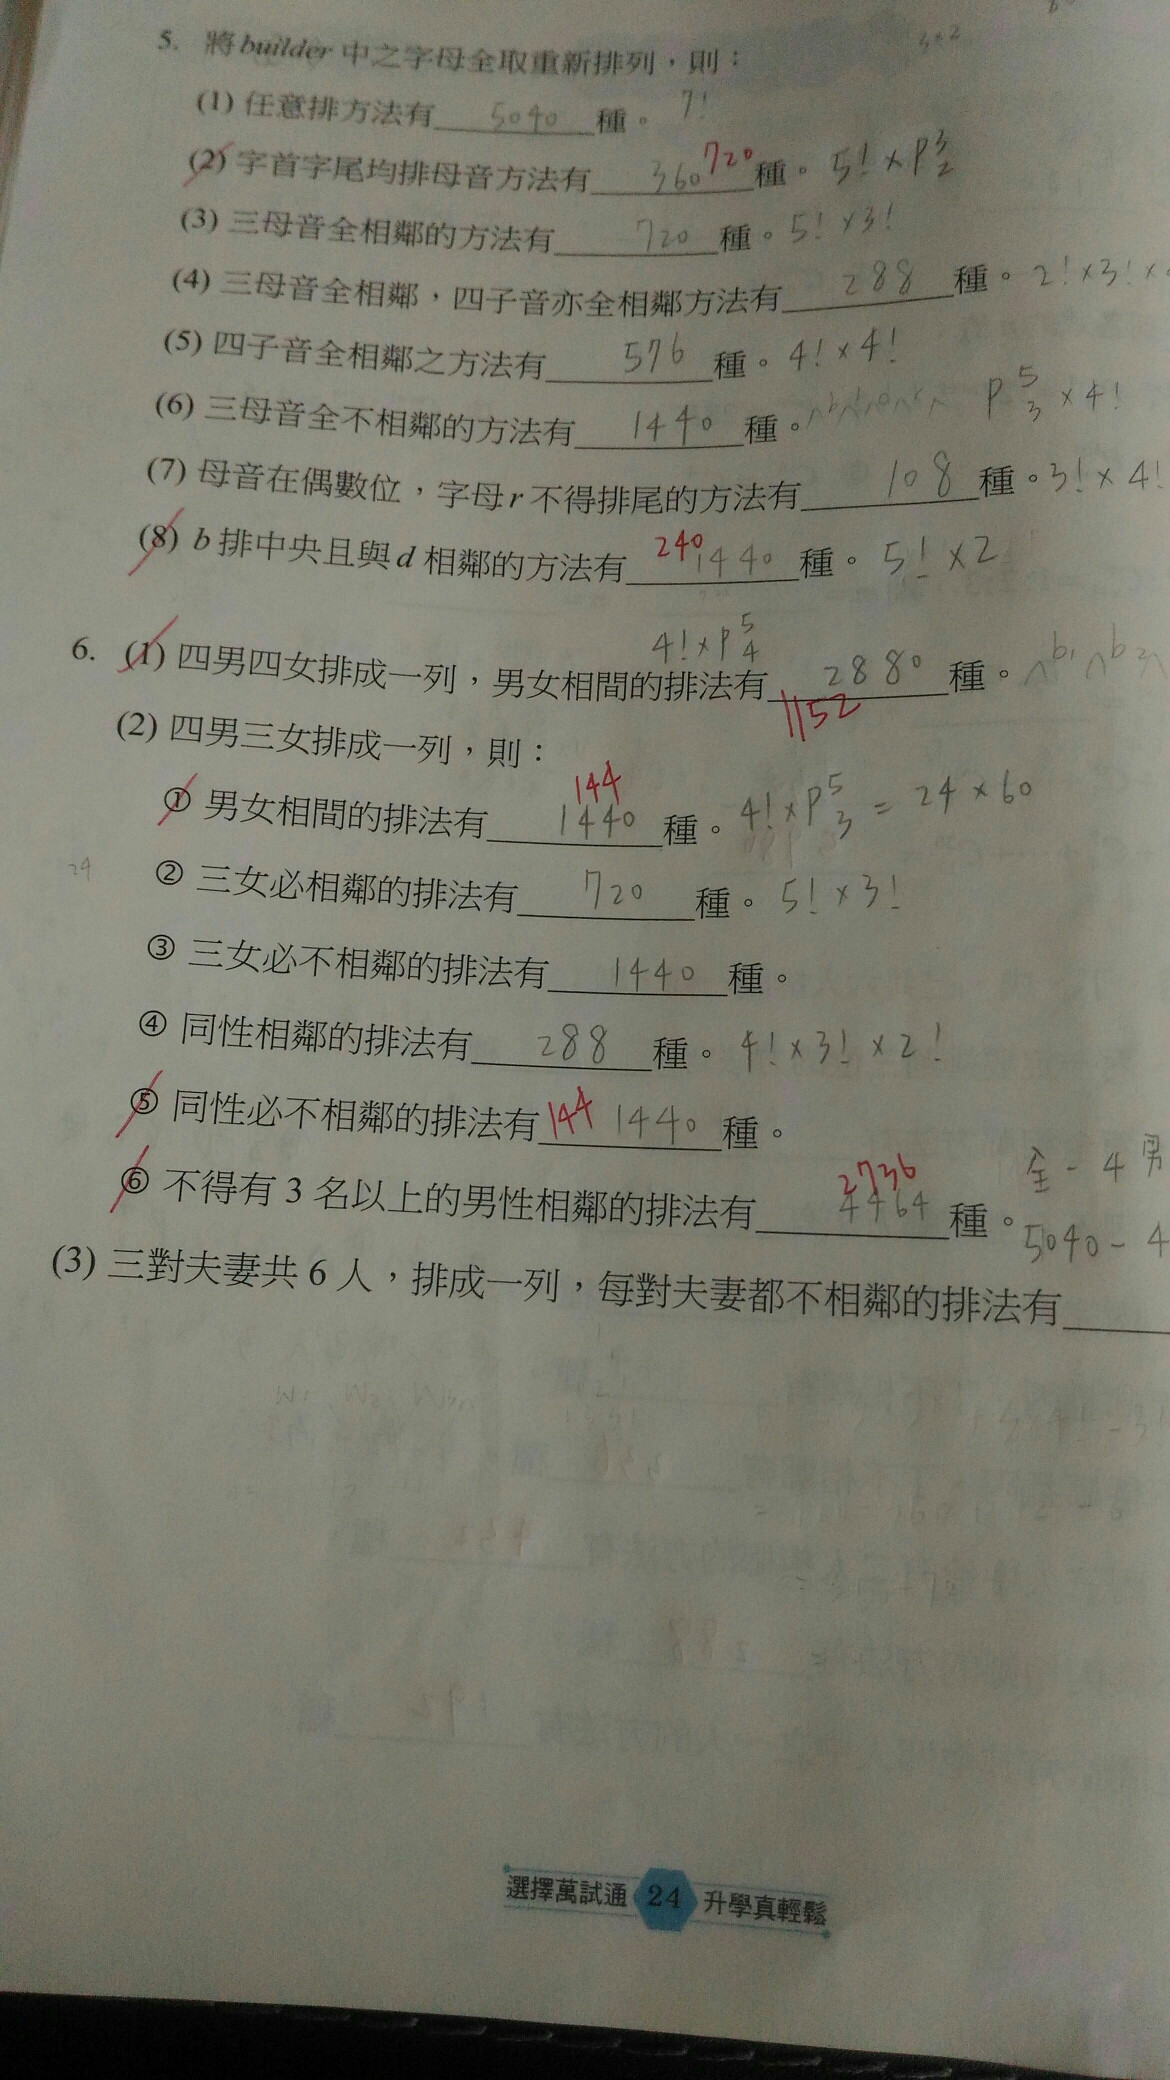 5. 將builder中之字母全取重新排列,則:
(1) 任意排方法有 5040 種。 7!
(2) 字首字尾均排母音方法有 360 720 種。 5! × P 3 2
(3) 三母音全相鄰的方法有 720 種。 5! × 3!
(4) 三母音全相鄰,四子音亦全相鄰方法有 288 種。 2! × 3! ×
(5) 四子音全相鄰之方法有 576 種。 4! × 4!
(6) 三母音全不相鄰的方法有 1440 種。 P 5 3 × 4!
(7) 母音在偶數位,字母r不得排尾的方法有 108 種。 3! × 4!
(8) b排中央且與d相鄰的方法有 240 1440 種。 5! × 2
4! × P 5 4
6. (1) 四男四女排成一列,男女相間的排法有 2880 種。
1152
(2) 四男三女排成一列,則:
144
① 男女相間的排法有 1440 種。 4! × P 5 3 = 24 × 60
24
② 三女必相鄰的排法有 720 種。 5! × 3!
③ 三女必不相鄰的排法有 1440 種。
④ 同性相鄰的排法有 288 種。 4! × 3! × 2!
⑤ 同性必不相鄰的排法有 144 1440 種。
2736 全 - 4 男
⑥ 不得有3名以上的男性相鄰的排法有 4464 種。
5040 - 4
(3) 三對夫妻共6人,排成一列,每對夫妻都不相鄰的排法有
選擇萬試通 24 升學真輕鬆